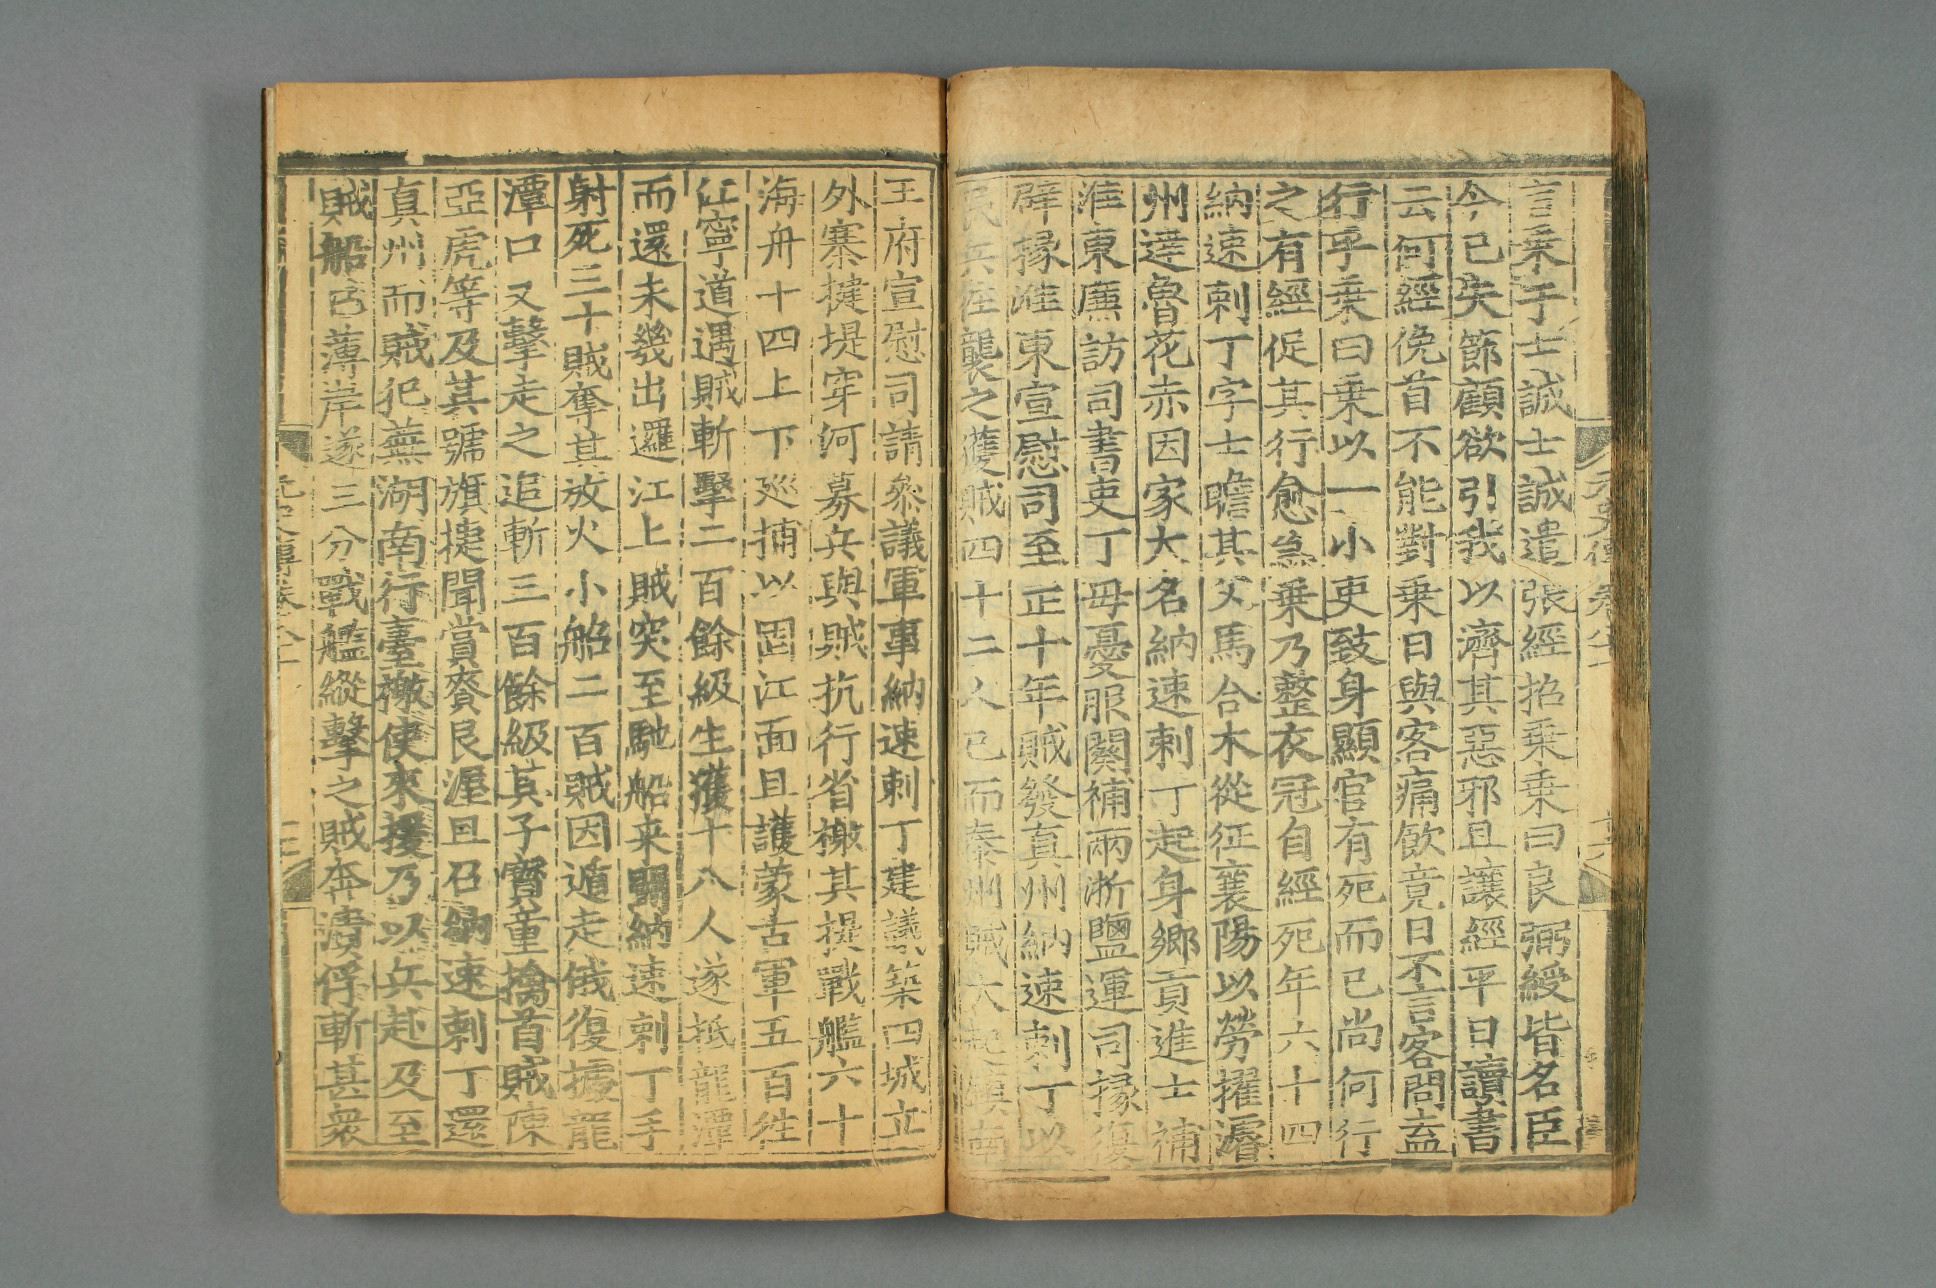 言乗于士誠士誠遣張經招乗乗曰良弼綬皆名臣
今已失節顧欲引我以濟其惡邪且讓經平日讀書
云何經俛首不能對乗日與客痛飲竟日不言客問盍
行乎乗曰乗以一小吏致身顯官有死而已尚何行
之有經促其行愈急乗乃整衣冠自經死年六十四
納速剌丁字士瞻其父馬合木從征襄陽以勞擢濬
州達魯花赤因家大名納速剌丁起身鄉貢進士補
淮東廉訪司書吏丁毋憂服闋補兩淅鹽運司掾復
辟掾淮東宣慰司至正十年賊發真州納速剌丁以
民兵往襲之獲賊四十二人已而泰州賊大起鎮南
王府宣慰司請叅議軍事納速剌丁建議築四城立
外寨揵堤穿河募兵與賊抗行省檄其提戰艦六十
海舟十四上下廵捕以固江面且護蒙古軍五百徃
江寧道遇賊斬擊二百餘級生獲十八人遂抵龍潭
而還未幾出邏江上賊突至馳船来弼納速剌丁手
射死三十賊奪其放火小船二百賊因遁走俄復據龍
潭口又擊走之追斬三百餘級其子寶童擒首賊陳
亞虎等及其號旗捷聞賞賚艮渥且召納速剌丁還
真州而賊犯蕪湖南行臺檄使來援乃以兵赴及至
賊船已薄岸遂三分戰艦縱擊之賊奔潰俘斬甚衆
元史傳卷八十